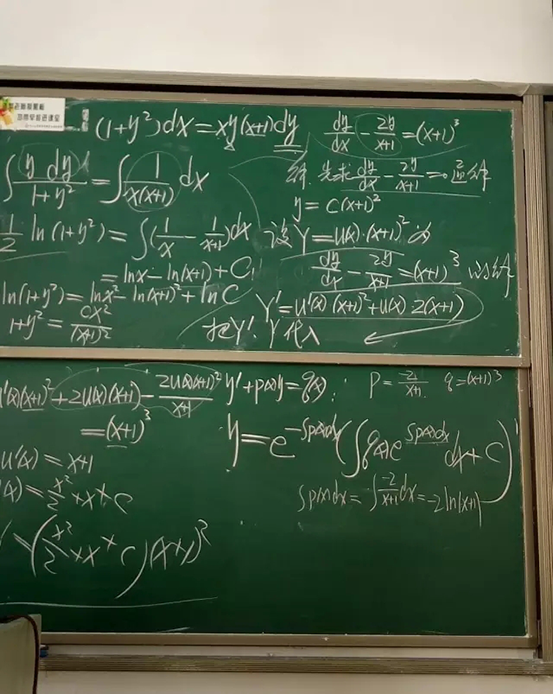 (1+y²)dx=xy(x+1)dy
∫ y dy / 1+y² = ∫ 1/x(x+1) dx
1/2 ln(1+y²) = ∫(1/x - 1/x+1)dx
= lnx - ln(x+1) + C₁
ln(1+y²) = lnx² - ln(x+1)² + lnC
1+y² = Cx²/(x+1)²
dy/dx - 2y/x+1 = (x+1)³
解. 先求 dy/dx - 2y/x+1 = 0 通解
y = C(x+1)²
设 Y = u(x)·(x+1)² 为
dy/dx - 2y/x+1 = (x+1)³ 的解
Y' = u'(x)(x+1)² + u(x) 2(x+1)
把Y'. Y 代入
u'(x)(x+1)² + 2u(x)(x+1) - 2u(x)(x+1)²/x+1
= (x+1)³
u'(x) = x+1
(x) = x²/2 + x + C
(x²/2 + x + C)(x+1)²
y' + p(x)y = q(x): P = -2/x+1 q = (x+1)³
y = e^-∫p(x)dx (∫q(x)e^∫p(x)dx dx + C)
∫p(x)dx = ∫ -2/x+1 dx = -2ln|x+1|